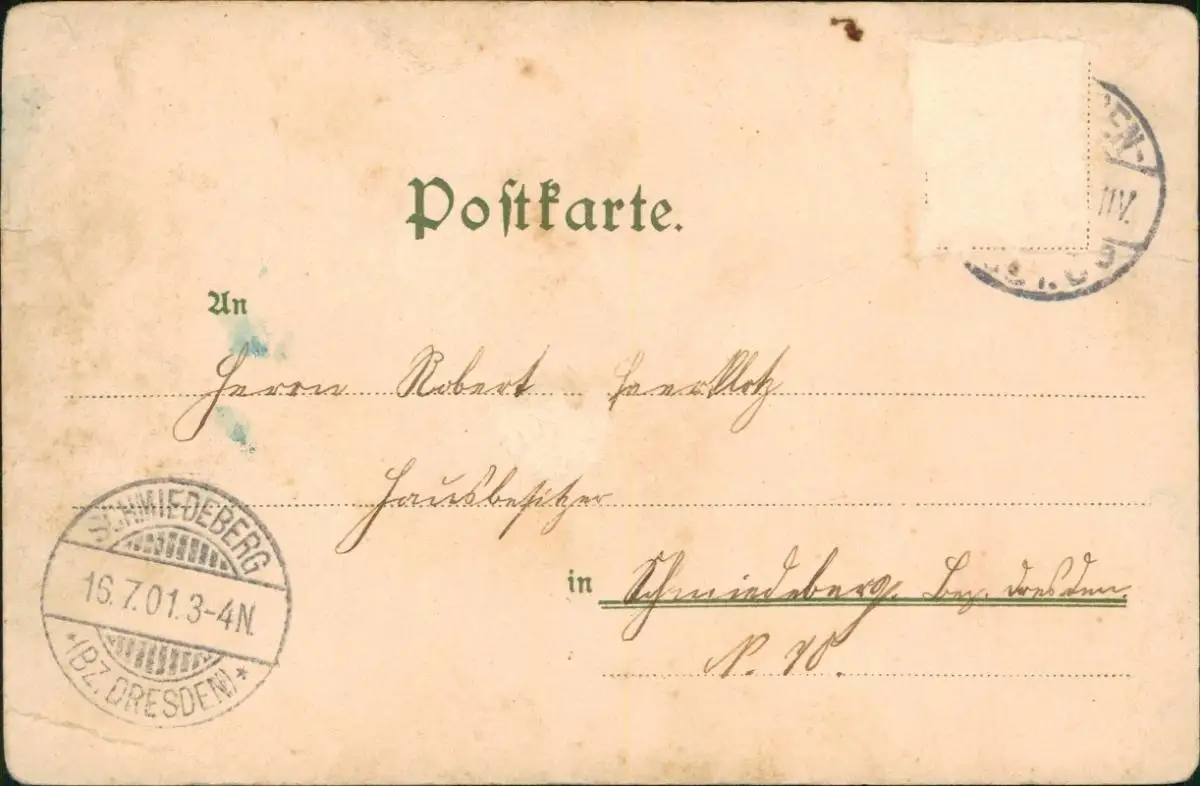 Postkarte.
An
Herrn Robert
Hausbesitzer
in Schmiedeberg. Bez. Dresden.
N. 78.
SCHMIEDEBERG
16.7.01.3-4N.
*(BZ. DRESDEN)*